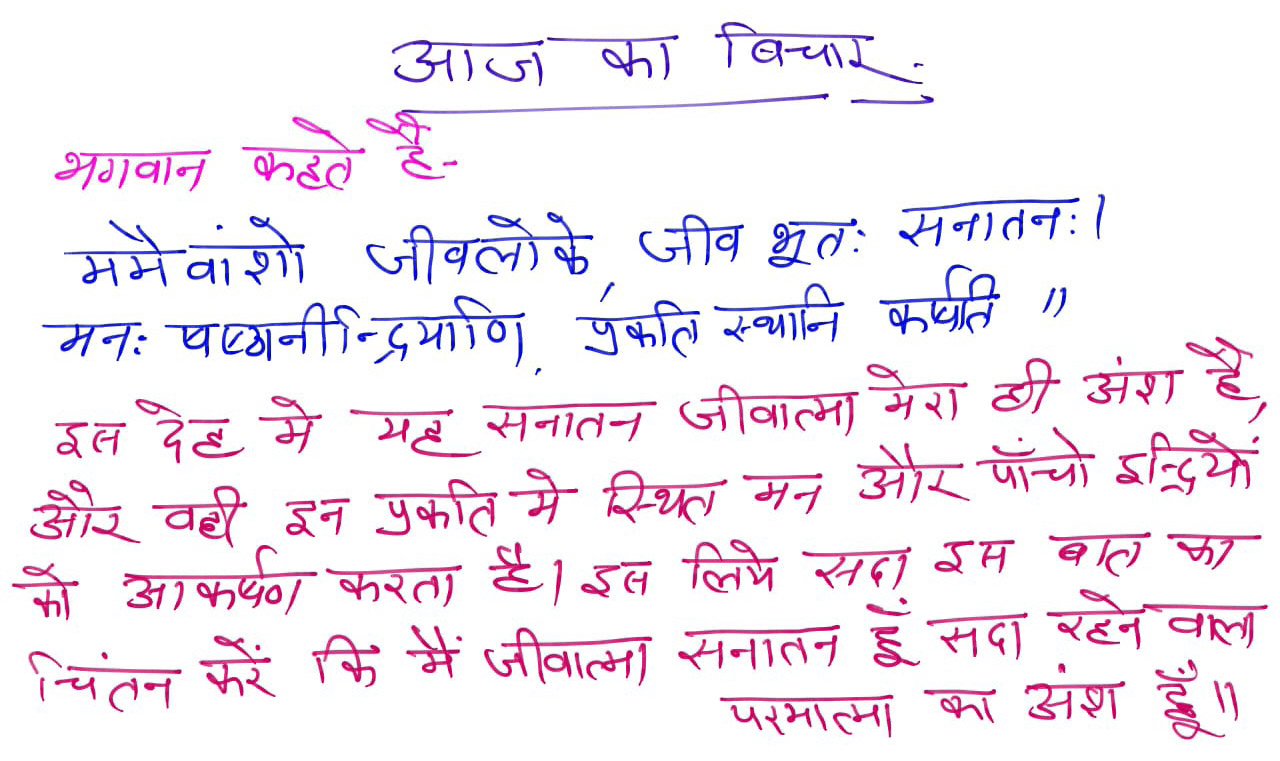 आज का बिचार :
भगवान कहते है-
ममैवांशो जीवलोके, जीव भूतः सनातनः।
मनः षष्ठानीन्द्रियाणि, प्रकति स्थानि कर्षति ॥
इस देह मे यह सनातन जीवात्मा मेरा ही अंश है,
और वही इन प्रकति मे स्थित मन और पाँचो इन्द्रियों
को आकर्षण करता है। इस लिये सदा इस बात का
चिंतन करें कि मैं जीवात्मा सनातन हूँ सदा रहने वाला
परमात्मा का अंश हूँ॥